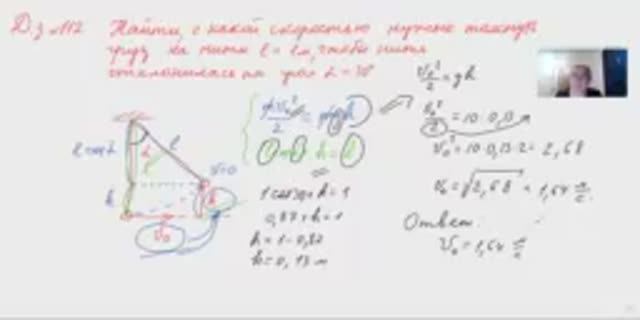 Д.з №112 Найти, с какой скоростью нужно толкнуть
груз на нити l = 1м, чтобы нить
отклонилась на угол α = 30°
l cos α
α
l
h
V=0
h
V₀
mV₀²/2 = mgh
h = l
1 cos 30 + h = 1
0,87 + h = 1
h = 1 - 0,87
h = 0,13 м
V₀²/2 = gh
V₀²/2 = 10·0,13
V₀² = 10·0,13·2 = 2,68
V₀ = √2,68 = 1,64 м/с
Ответ:
V₀ = 1,64 м/с